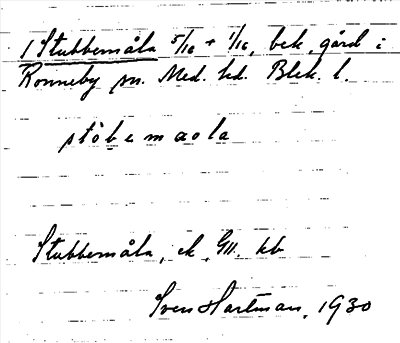 1 Stubbemåla 5/16 + 1/16, bek. gård i
Ronneby sn. Med. hd. Blek. l.
stöbemaola
Stubbemåla, ek, GII. kb
Sven Hartman, 1930